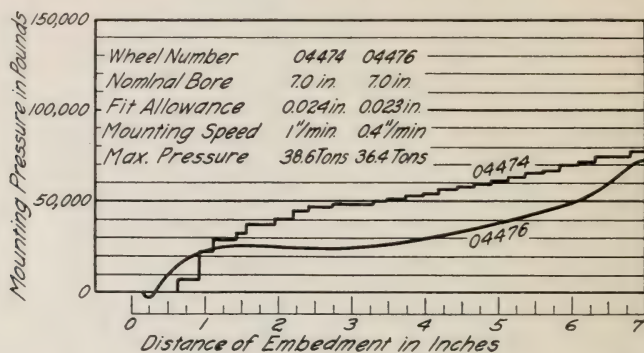 150,000
Mounting Pressure in Pounds
100,000
50,000
0
Wheel Number 04474 04476
Nominal Bore 7.0 in. 7.0 in.
Fit Allowance 0.024in. 0.023in.
Mounting Speed 1"/min. 0.4"/min
Max. Pressure 38.6Tons 36.4 Tons
04474
04476
0 1 2 3 4 5 6 7
Distance of Embedment in Inches